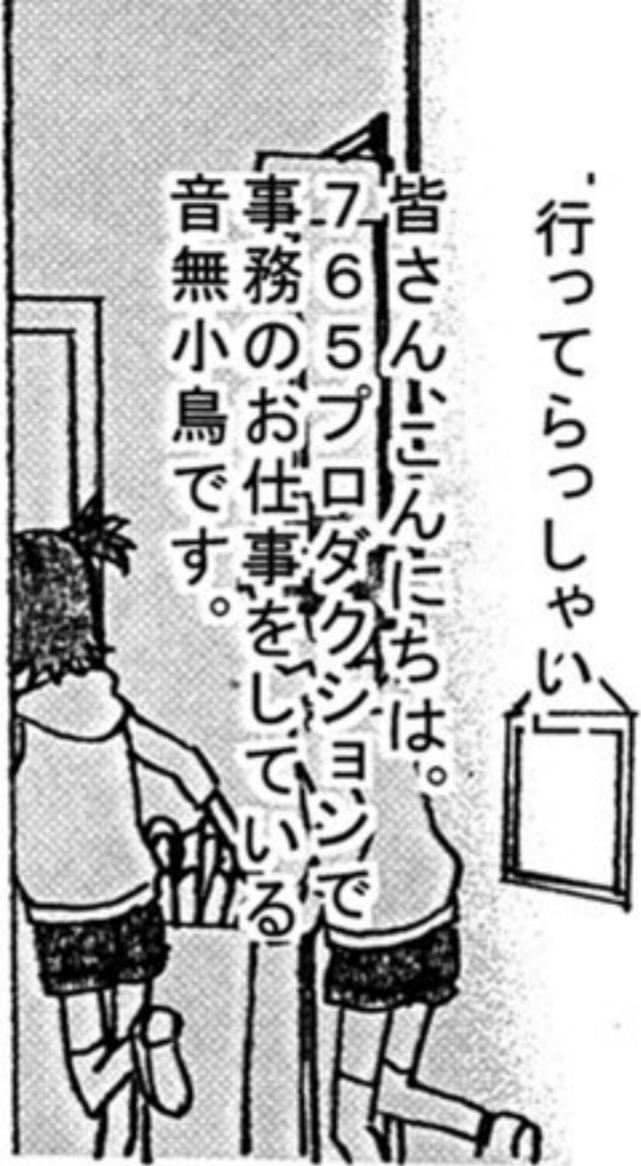 「行ってらっしゃい」
皆さん、こんにちは。
765プロダクションで
事務のお仕事をしている
音無小鳥です。